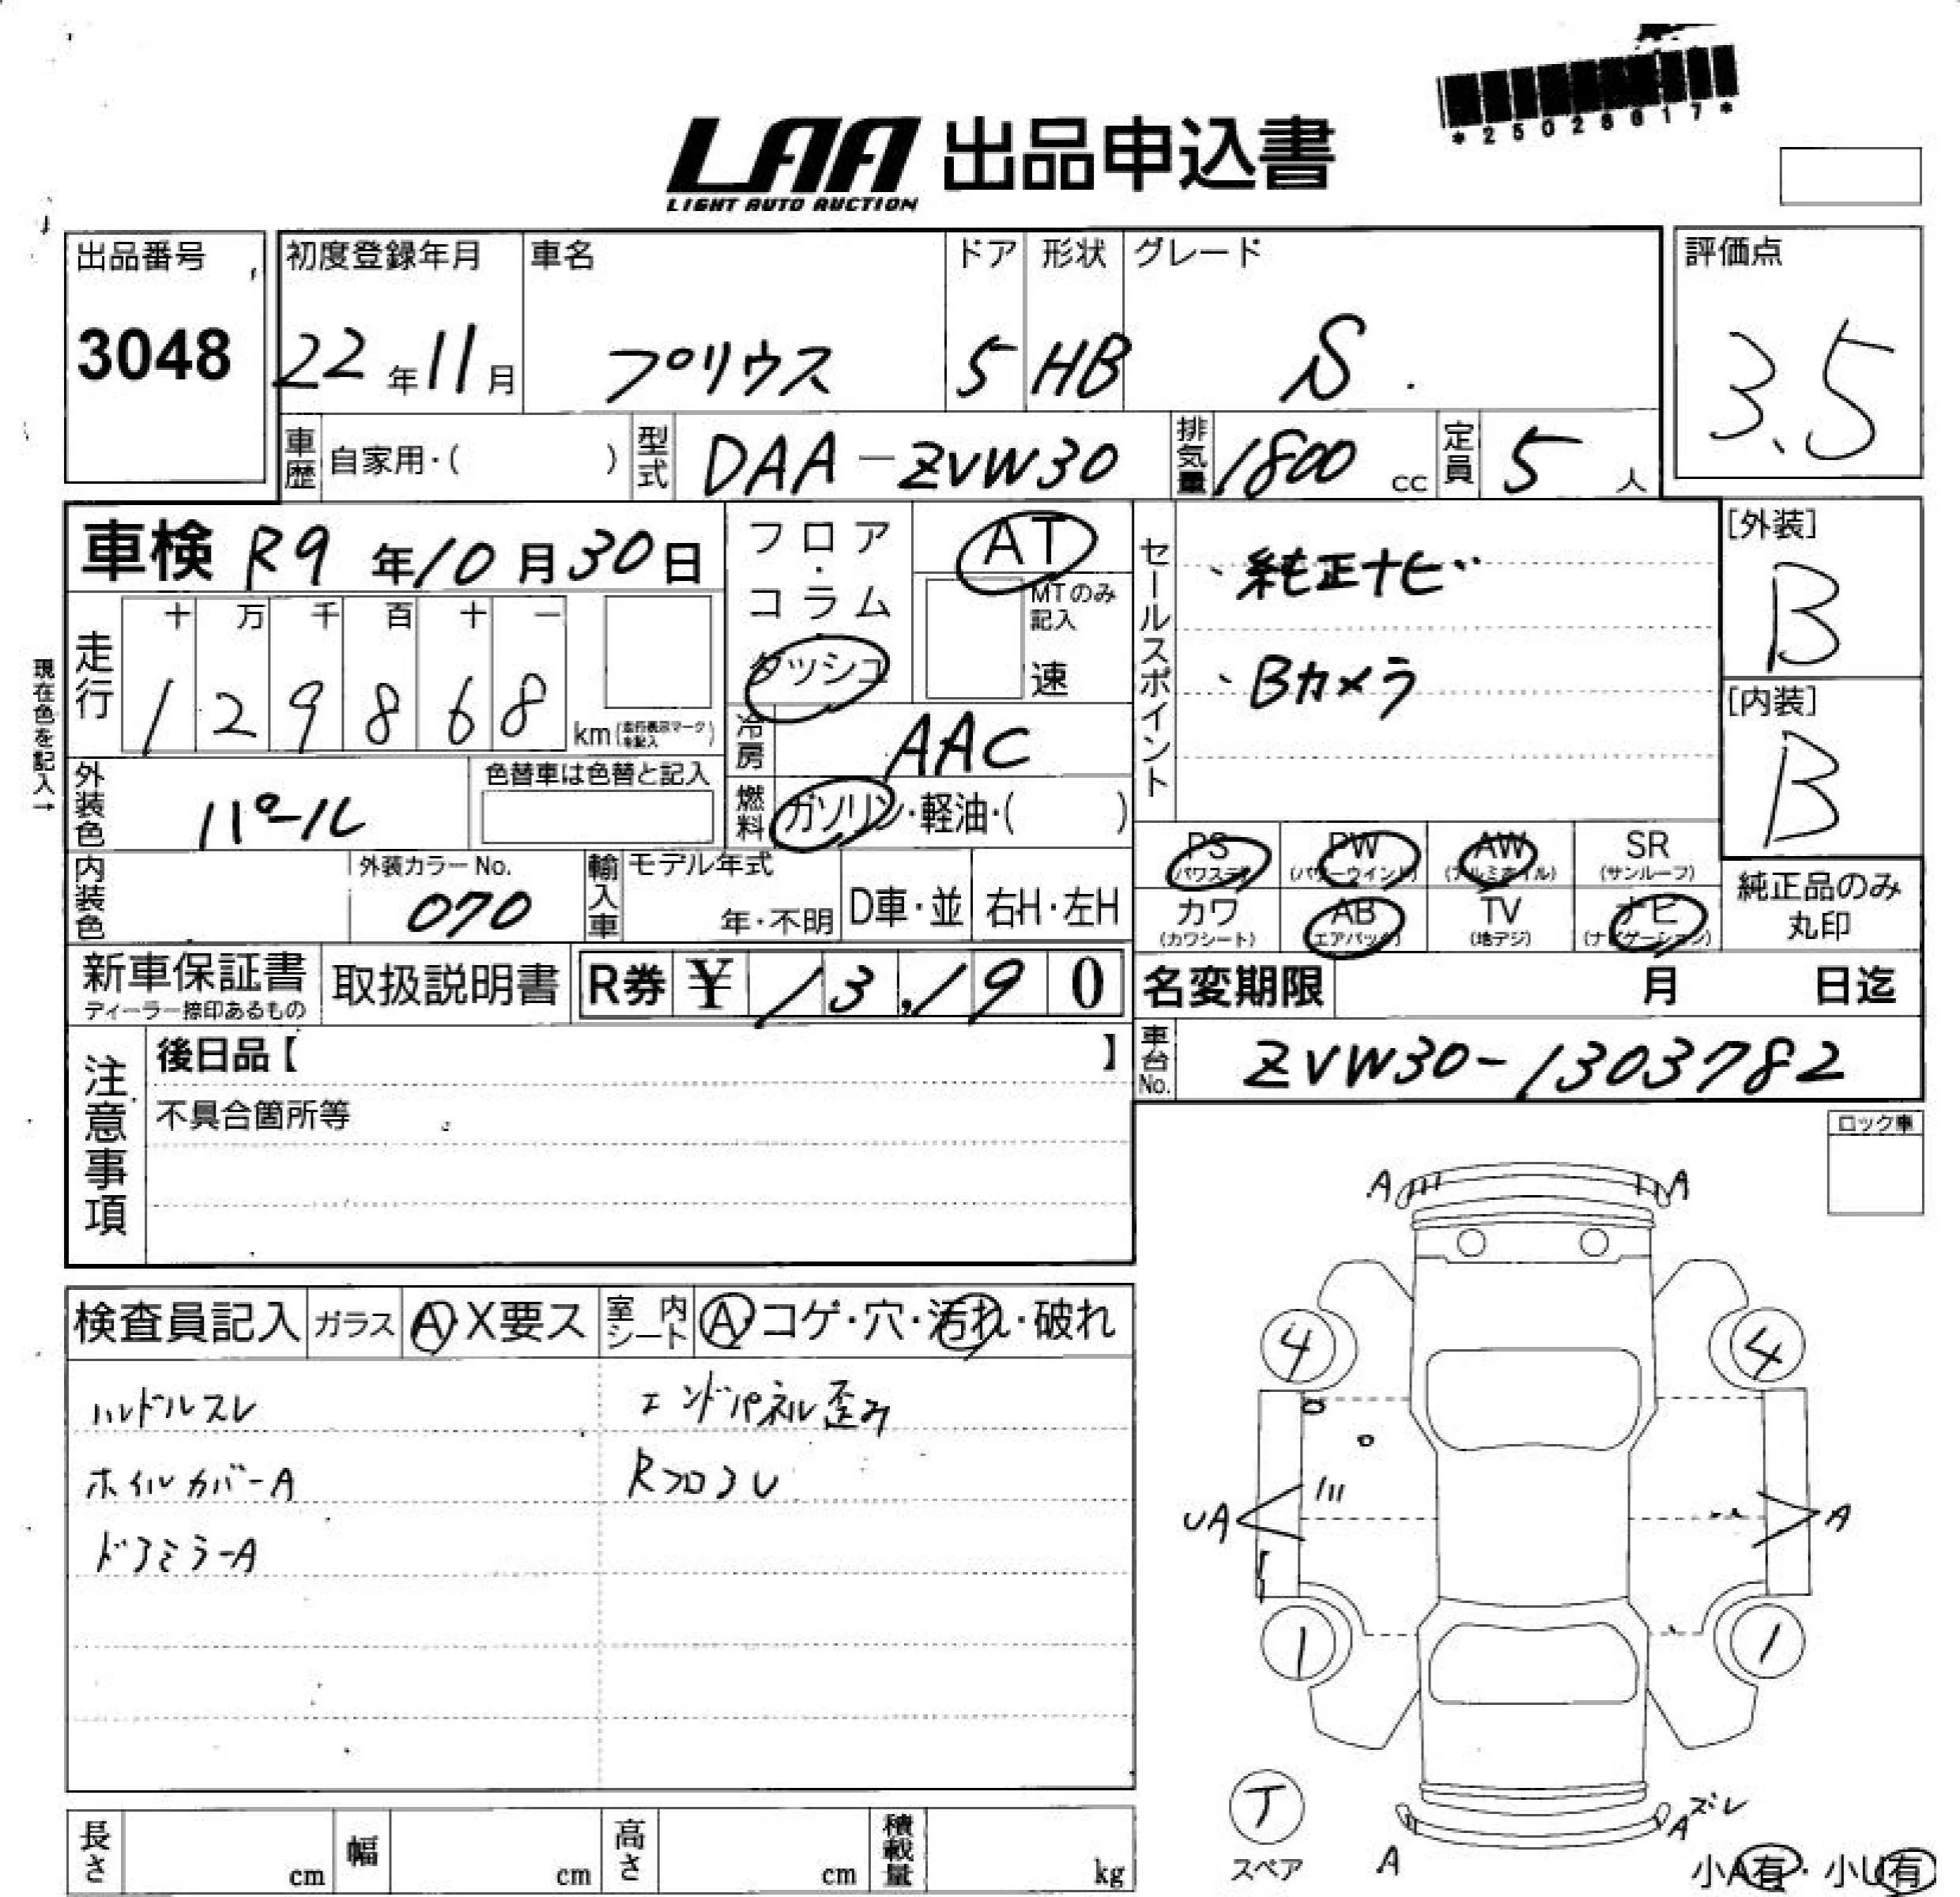 *25028617*
LAA 出品申込書
LIGHT AUTO AUCTION
出品番号 3048
初度登録年月 22年11月
車名 プリウス
ドア 5
形状 HB
グレード S
評価点 3.5
車歴 自家用・( )
型式 DAA-ZVW30
排気量 1800 cc
定員 5 人
車検 R9年10月30日
フロア・コラム・ダッシュ
AT
MTのみ記入 速
セールスポイント
・純正ナビ
・Bカメラ
[外装] B
[内装] B
現在色を記入→
走行 十 万 千 百 十 一
1 2 9 8 6 8 km (走行表示マークを記入)
冷房 AAC
外装色 パール
色替車は色替と記入
燃料 ガソリン・軽油・( )
PS (パワステ)
PW (パワーウインド)
AW (アルミホイル)
SR (サンルーフ)
カワ (カワシート)
AB (エアバック)
TV (地デジ)
ナビ (ナビゲーション)
純正品のみ丸印
内装色
外装カラーNo. 070
輸入車 モデル年式 年・不明 D車・並 右H・左H
新車保証書 ディーラー捺印あるもの
取扱説明書
R券 ¥ 13,190
名変期限 月 日迄
注意事項
後日品【 】
不具合箇所等
車台No. ZVW30-1303782
ロック車
A A
検査員記入 ガラス A・X要ス 室内シート A・コゲ・穴・汚れ・破れ
ハンドルスレ エンドパネル歪み
ホイルカバーA RフロアU
ドアミラーA
4 4
UA A
1 1
T
スペア
A A ズレ
小A有・小U有
長さ cm 幅 cm 高さ cm 積載量 kg